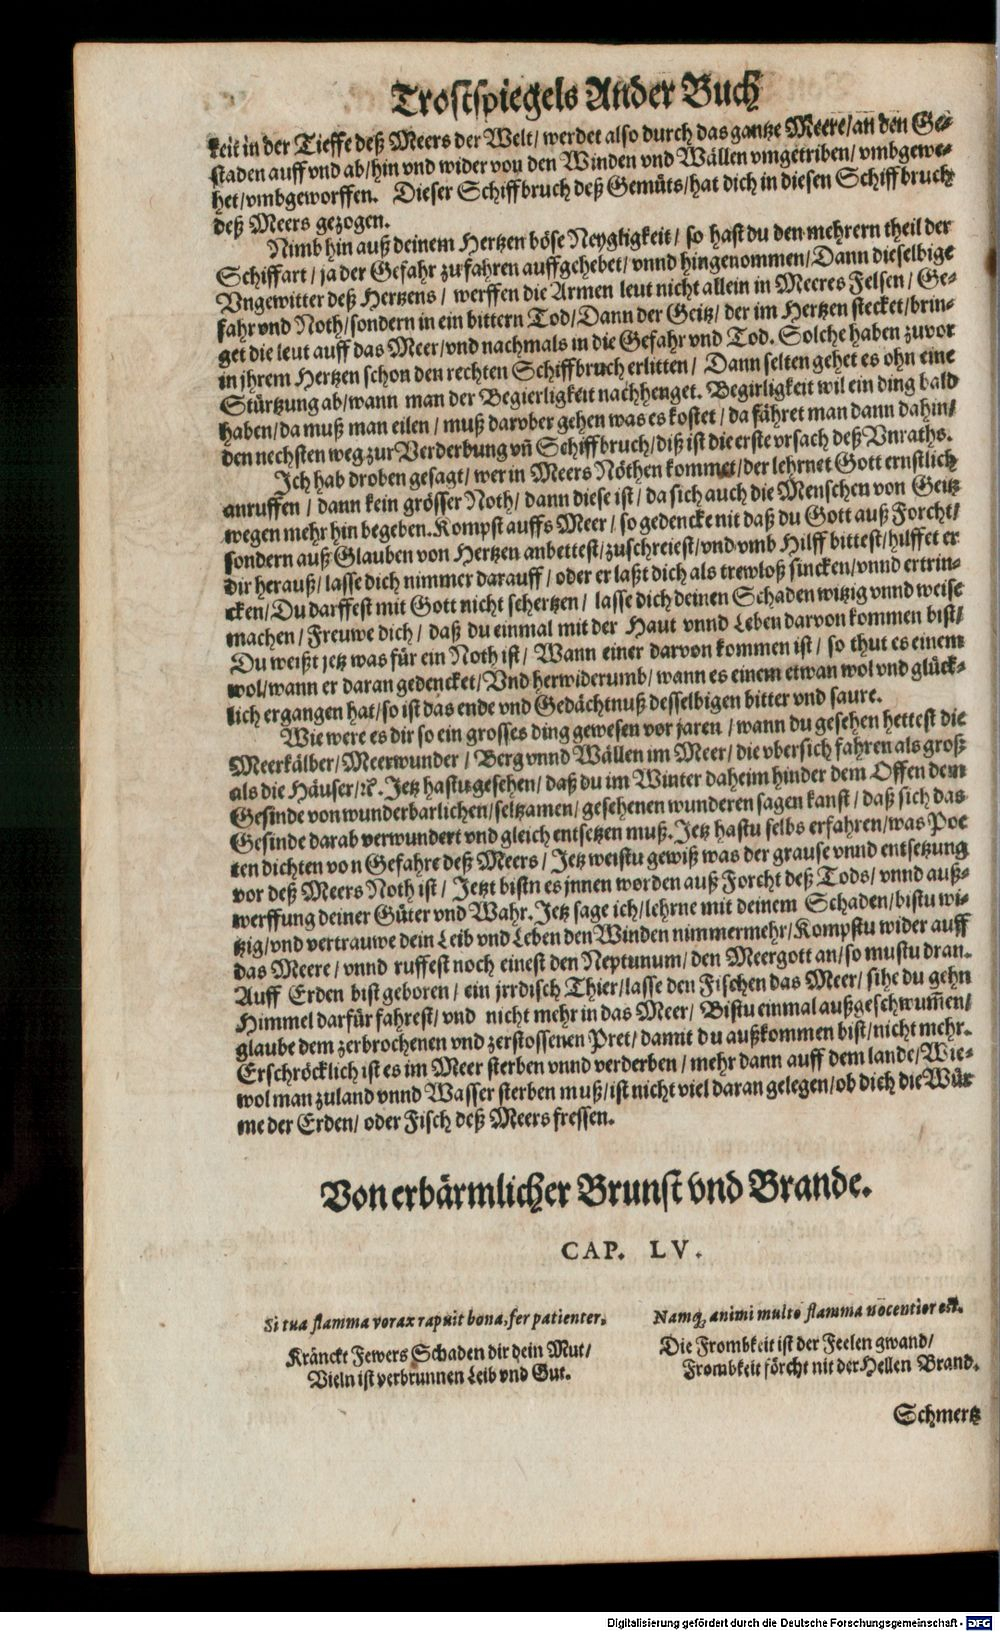 Trostspiegels Ander Buch
keit in der Tieffe deß Meers der Welt/ werdet also durch das gantze Meere/ an den Ge-
staden auff vnd ab/ hin vnd wider von den Winden vnd Wällen vmgetriben/ vmbgewe-
het/ vmbgeworffen. Dieser Schiffbruch deß Gemüts/ hat dich in diesen Schiffbruch
deß Meers gezogen.
Nimb hin auß deinem Hertzen böse Neygligkeit/ so hast du den mehrern theil der
Schiffart/ ja der Gefahr zu fahren auffgehebet/ vnnd hingenommen/ Dann dieselbige
Vngewitter deß Hertzens/ werffen die Armen leut nicht allein in Meeres Felsen/ Ge-
fahr vnd Noth/ sondern in ein bittern Tod/ Dann der Geitz/ der im Hertzen stecket/ brin-
get die leut auff das Meer/ vnd nachmals in die Gefahr vnd Tod. Solche haben zuvor
in jhrem Hertzen schon den rechten Schiffbruch erlitten/ Dann selten gehet es ohn eine
Stürtzung ab/ wann man der Begierligkeit nachhenget. Begirligkeit wil ein ding bald
haben/ da muß man eilen/ muß darvber gehen was es kostet/ da fähret man dann dahin/
den nechsten weg zur Verderbung vñ Schiffbruch/ diß ist die erste vrsach deß Vnraths.
Ich hab droben gesagt/ wer in Meers Nöthen kommet/ der lehrnet Gott ernstlich
anruffen/ dann kein grösser Noth/ dann diese ist/ da sich auch die Menschen von Geitz
wegen mehr hin begeben. Kompst auffs Meer/ so gedencke nit daß du Gott auß Forcht/
sondern auß Glauben von Hertzen anbettest/ zuschreiest/ vnd vmb Hilff bittest/ hilffet er
dir herauß/ lasse dich nimmer darauff/ oder er laßt dich als trewloß sincken/ vnnd ertrin-
cken/ Du darffest mit Gott nicht schertzen/ lasse dich deinen Schaden witzig vnnd weise
machen/ Freuwe dich/ daß du einmal mit der Haut vnnd Leben darvon kommen bist/
Du weißt jetz was für ein Noth ist/ Wann einer darvon kommen ist/ so thut es einem
wol/ wann er daran gedencket/ Vnd herwiderumb/ wann es einem etwan wol vnd glück-
lich ergangen hat/ so ist das ende vnd Gedächtnuß desselbigen bitter vnd saure.
Wie were es dir so ein grosses ding gewesen vor jaren/ wann du gesehen hettest die
Meerkälber/ Meerwunder/ Berg vnnd Wällen im Meer/ die vbersich fahren als groß
als die Häuser/ ꝛc. Jetz hastu gesehen/ daß du im Winter daheim hinder dem Offen dem
Gesinde von wunderbarlichen/ seltzamen/ gesehenen wunderen sagen kanst/ daß sich das
Gesinde darab verwundert vnd gleich entsetzen muß. Jetz hastu selbs erfahren/ was Poe
ten dichten von Gefahre deß Meers/ Jetz weistu gewiß was der grause vnnd entsetzung
vor deß Meers Noth ist/ Jetzt bistn es jnnen worden auß Forcht deß Tods/ vnnd auß-
werffung deiner Güter vnd Wahr. Jetz sage ich/ lehrne mit deinem Schaden/ bistu wi-
tzig/ vnd vertrauwe dein Leib vnd Leben den Winden nimmermehr/ Kompstu wider auff
das Meere/ vnnd ruffest noch einest den Neptunum/ den Meergott an/ so mustu dran.
Auff Erden bist geboren/ ein jrrdisch Thier/ lasse den Fischen das Meer/ sihe du gehn
Himmel darfür fahrest/ vnd nicht mehr in das Meer/ Bistu einmal außgeschwum̃en/
glaube dem zerbrochenen vnd zerstossenen Pret/ damit du außkommen bist/ nicht mehr.
Erschröcklich ist es im Meer sterben vnnd verderben/ mehr dann auff dem lande/ Wie-
wol man zuland vnnd Wasser sterben muß/ ist nicht viel daran gelegen/ ob dich die Wür
me der Erden/ oder Fisch deß Meers fressen.
Von erbärmlicher Brunst vnd Brande.
CAP. LV.
Si tua flamma vorax rapuit bona, fer patienter.
Kränckt Fewers Schaden dir dein Mut/
Vieln ist verbrunnen Leib vnd Gut.
Namq; animi multo flamma nocentior est.
Die Frombkeit ist der Seelen gwand/
Frombkeit förcht nit der Hellen Brand.
Schmertz
Digitalisierung gefördert durch die Deutsche Forschungsgemeinschaft - DFG